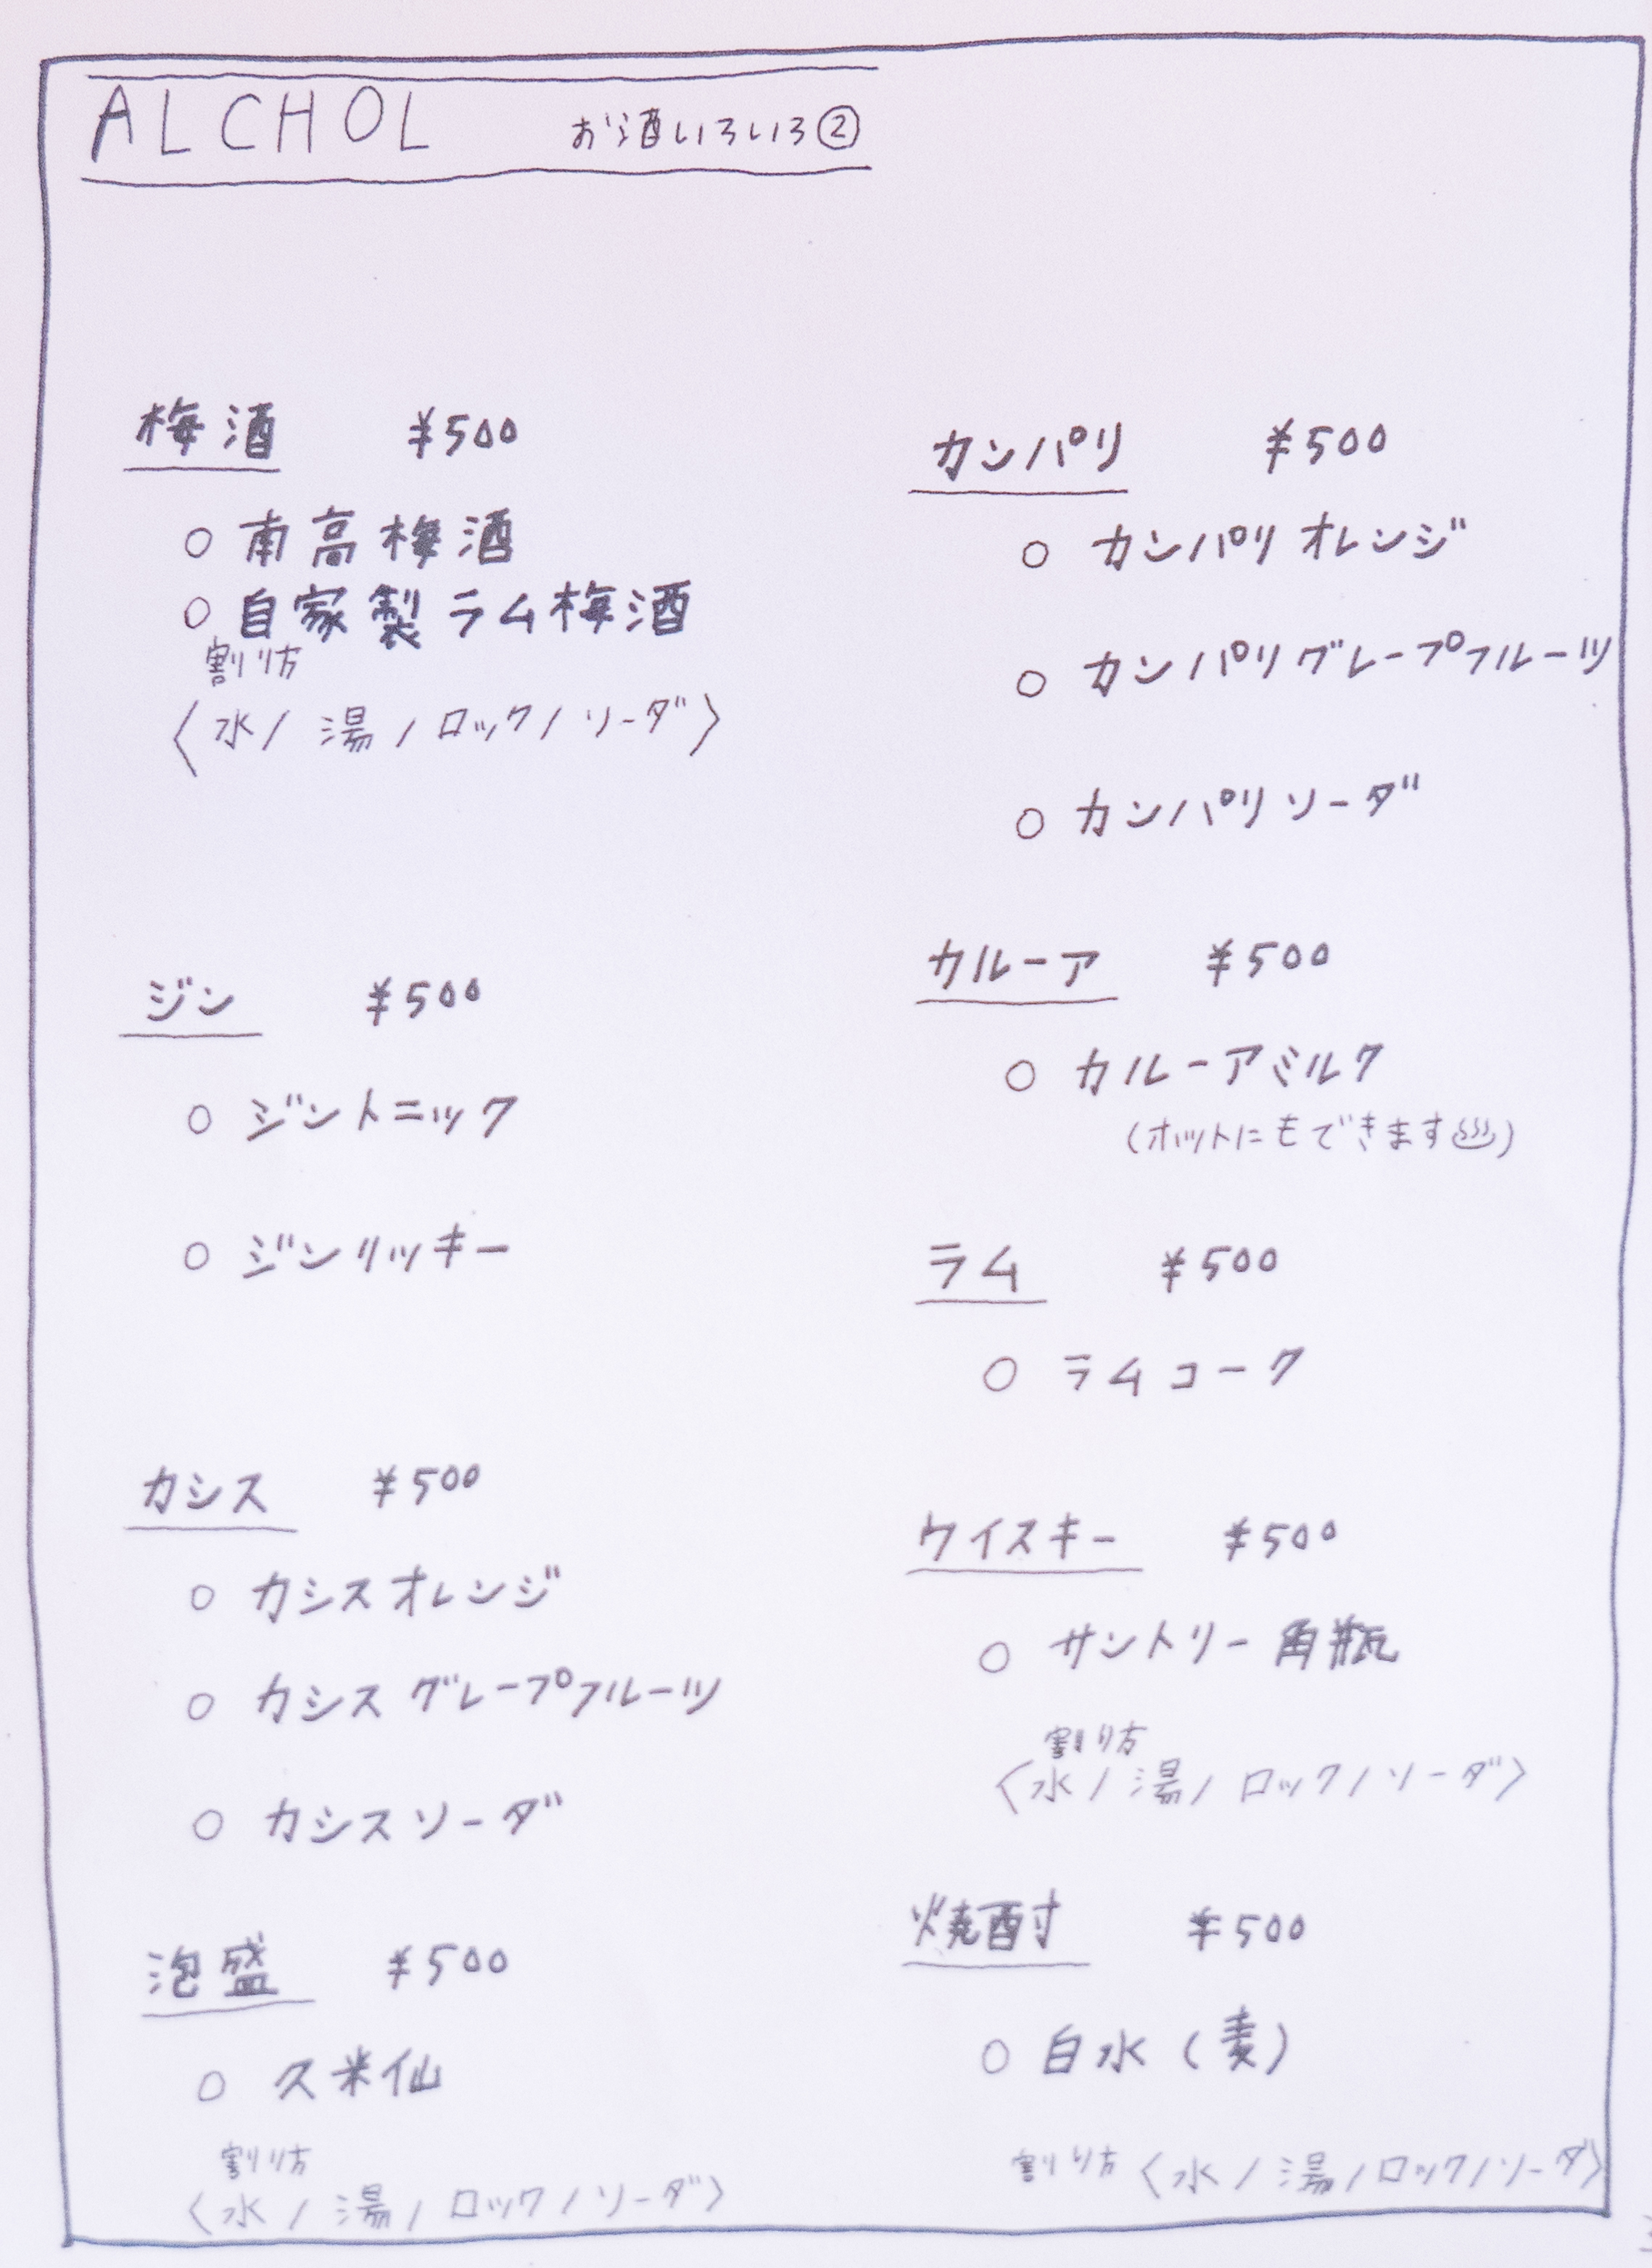 ALCHOL お酒いろいろ②
梅酒 ¥500
○ 南高梅酒
○ 自家製ラム梅酒
割り方
〈水/湯/ロック/ソーダ〉
ジン ¥500
○ ジントニック
○ ジンリッキー
カシス ¥500
○ カシスオレンジ
○ カシスグレープフルーツ
○ カシスソーダ
泡盛 ¥500
○ 久米仙
割り方
〈水/湯/ロック/ソーダ〉
カンパリ ¥500
○ カンパリオレンジ
○ カンパリグレープフルーツ
○ カンパリソーダ
カルーア ¥500
○ カルーアミルク
(ホットにもできます♨)
ラム ¥500
○ ラムコーク
ウイスキー ¥500
○ サントリー角瓶
割り方
〈水/湯/ロック/ソーダ〉
焼酎 ¥500
○ 白水(麦)
割り方〈水/湯/ロック/ソーダ〉